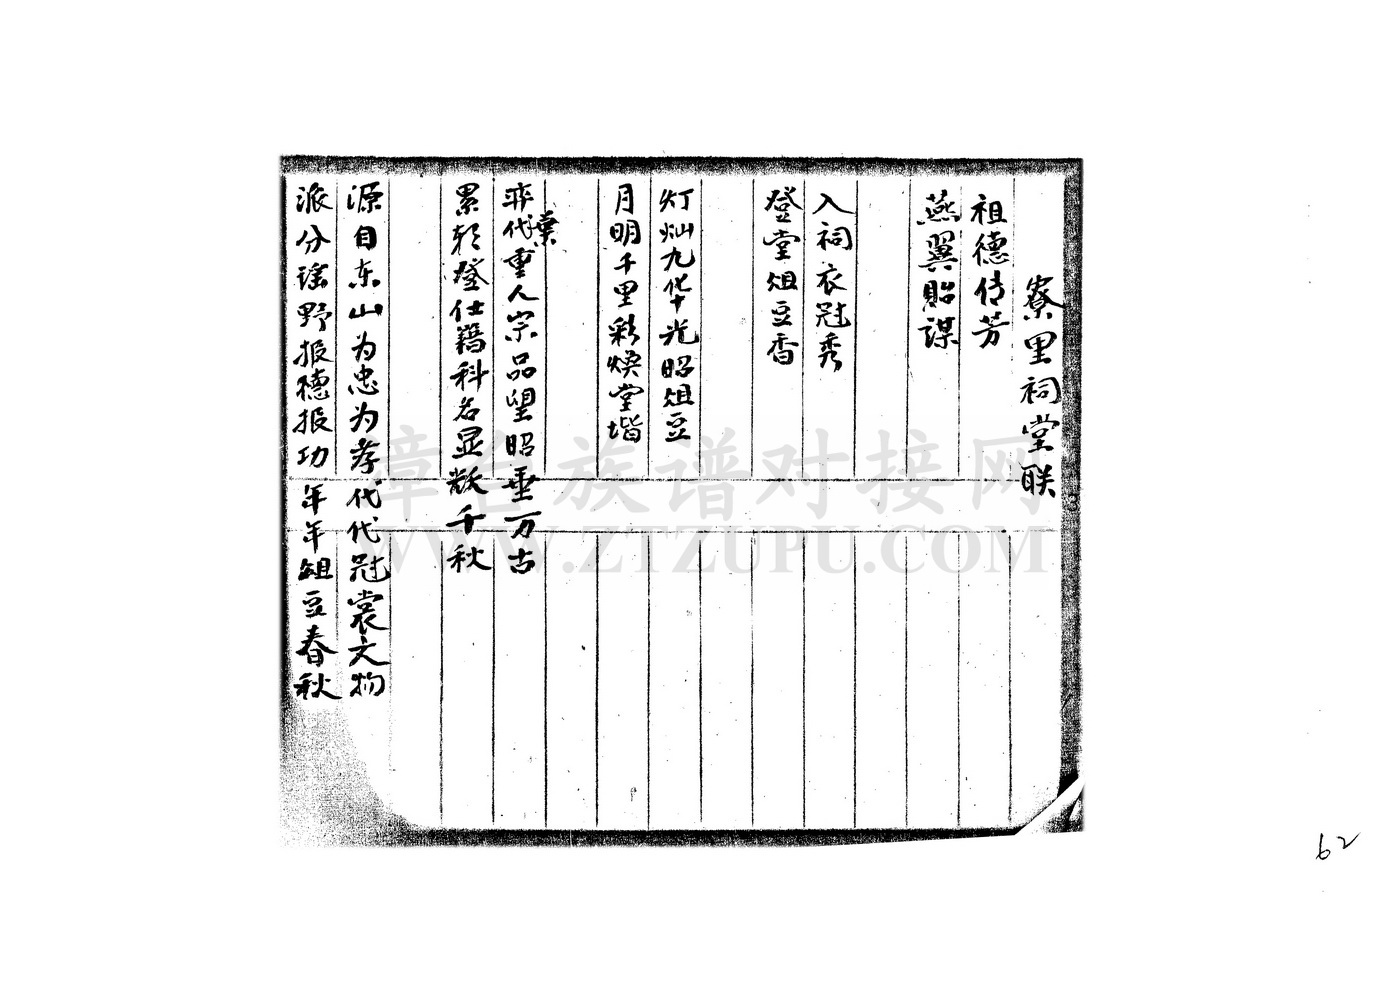 寮里祠堂联
祖德传芳
燕翼贻谋
入祠衣冠秀
登堂俎豆香
灯灿九华光昭俎豆
月明千里彩焕堂堦
弈代重人宗品望昭垂万古
葉
累朝登仕籍科名显猷千秋
源自东山为忠为孝代代冠裳文物
派分瑶野报德报功年年俎豆春秋
章台族谱对接网
WWW.ZTZUPU.COM
62